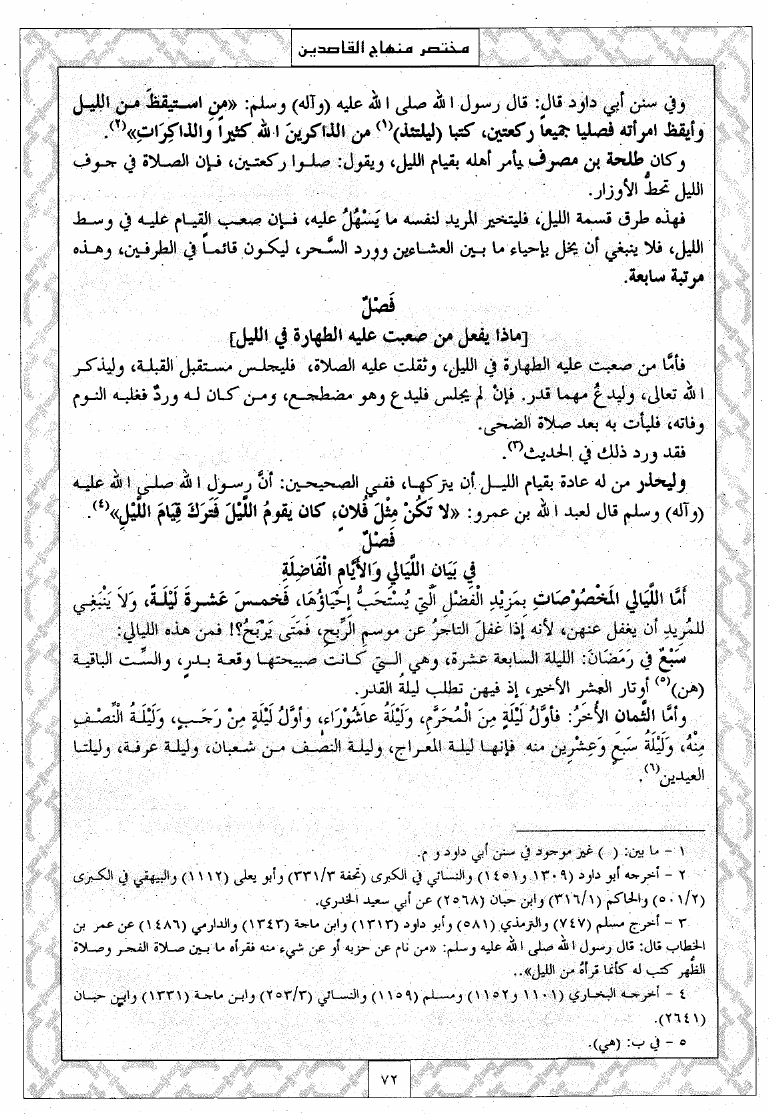 مختصر منهاج القاصدين
وفي سنن أبي داود قال: قال رسول الله صلى الله عليه (وآله) وسلم: «من استيقظَ من الليل
وأيقظ امرأته فصليا جميعاً ركعتين، كتبا (ليلتئذ)(١) من الذاكرينَ الله كثيراً والذاكِرَاتِ»(٢).
وكان طلحة بن مصرف يأمر أهله بقيام الليل، ويقول: صلوا ركعتين، فإن الصلاة في جوف
الليل تحطُّ الأوزار.
فهذه طرق قسمة الليل، فليتخير المريد لنفسه ما يَسْهُلُ عليه، فإن صعب القيام عليه في وسط
الليل، فلا ينبغي أن يخل بإحياء ما بين العشاءين وورد السَّحر، ليكون قائماً في الطرفين، وهذه
مرتبة سابعة.
فَصْلٌ
[ماذا يفعل من صعبت عليه الطهارة في الليل]
فأمَّا من صعبت عليه الطهارة في الليل، وثقلت عليه الصلاة، فليجلس مستقبل القبلة، وليذكر
الله تعالى، وليدعُ مهما قدر. فإنْ لم يجلس فليدع وهو مضطجع، ومن كان له وردٌ فغلبه النوم
وفاته، فليأت به بعد صلاة الضحى.
فقد ورد ذلك في الحديث(٣).
وليحذر من له عادة بقيام الليل أن يتركها، ففي الصحيحين: أنَّ رسول الله صلى الله عليه
(وآله) وسلم قال لعبد الله بن عمرو: «لا تَكُنْ مِثْلَ فُلانٍ، كان يقومُ اللَّيْلَ فَتَرَكَ قِيَامَ اللَّيْلِ»(٤).
فَصْلٌ
في بَيَانِ اللَّيَالي وَالأَيَّامِ الْفَاضِلَةِ
أَمَّا اللَّيَالي المَخْصُوصَاتِ بِمَزِيْدِ الْفَضْلِ الَّتي يُسْتَحَبُّ إِحْيَاؤُهَا، فَخَمسَ عَشرةَ لَيْلَةً، وَلاَ يَنْبَغِي
للمُرِيدِ أن يغفل عنهن، لأنه إذَا غفلَ التاجرُ عن موسمِ الرِّبحِ، فَمَتَى يَرْبَحُ؟! فمن هذه الليالي:
سَبْعٌ في رَمَضَانَ: الليلة السابعة عشرة، وهي التي كانت صبيحتها وقعة بدرٍ، والسِّت الباقية
(هن)(٥) أوتار العشر الأخير، إذ فيهن تطلب ليلةُ القدر.
وأمَّا الثَّمان الأُخَرُ: فأوَّلُ لَيْلَةٍ مِنَ المُحَرَّمِ، وَلَيْلَةُ عَاشُوْرَاءِ، وأوَّلُ لَيْلَةٍ مِنْ رَجَبٍ، وَلَيْلَةُ النِّصْفِ
مِنْهُ، وَلَيْلَةُ سَبَعٍ وَعِشْرِينَ منه فإنها ليلة المعراج، وليلة النصف من شعبان، وليلة عرفة، وليلتا
العيدين(٦).
١ - ما بين: ( ) غير موجود في سنن أبي داود و م.
٢ - أخرجه أبو داود (١٣٠٩ و١٤٥١) والنسائي في الكبرى (تحفة ٣٣١/٣) وأبو يعلى (١١١٢) والبيهقي في الكبرى
(٥٠١/٢) والحاكم (٣١٦/١) وابن حبان (٢٥٦٨) عن أبي سعيد الخدري.
٣ - أخرج مسلم (٧٤٧) والترمذي (٥٨١) وأبو داود (١٣١٣) وابن ماجة (١٣٤٣) والدارمي (١٤٨٦) عن عمر بن
الخطاب قال: قال رسول الله صلى الله عليه وسلم: «من نام عن حزبه أو عن شيء منه فقرأه ما بين صلاة الفجر وصلاة
الظُّهر كتب له كأنما قرأهُ من الليل»..
٤ - أخرجه البخاري (١١٠١ و١١٥٢) ومسلم (١١٥٩) والنسائي (٢٥٣/٣) وابن ماجة (١٣٣١) وابن حبان
(٢٦٤١).
٥ - في ب: (هي).
٧٢